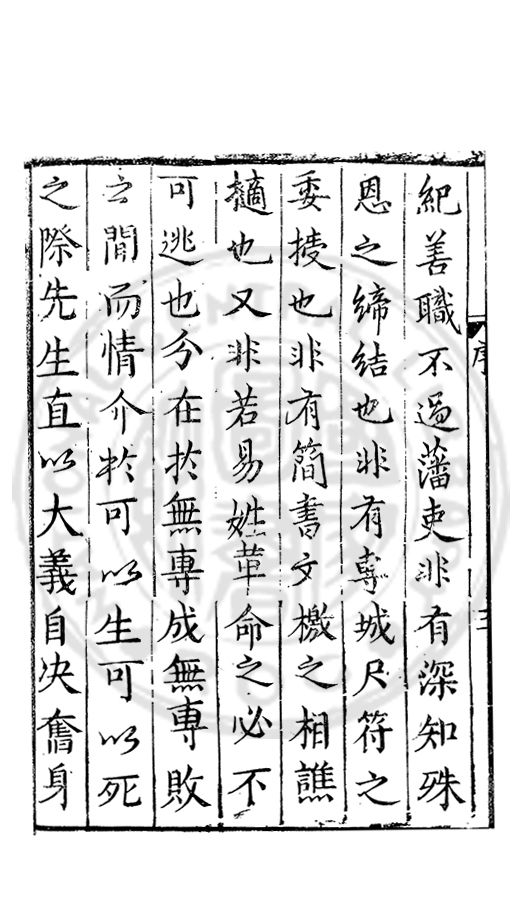 序
三
紀善職不過藩吏非有深知殊
恩之締結也非有專城尺符之
委掕也非有簡書文檄之相譙
擿也又非若易姓革命之必不
可逃也分在於無專成無專敗
之間而情介於可以生可以死
之際先生直以大義自决奮身